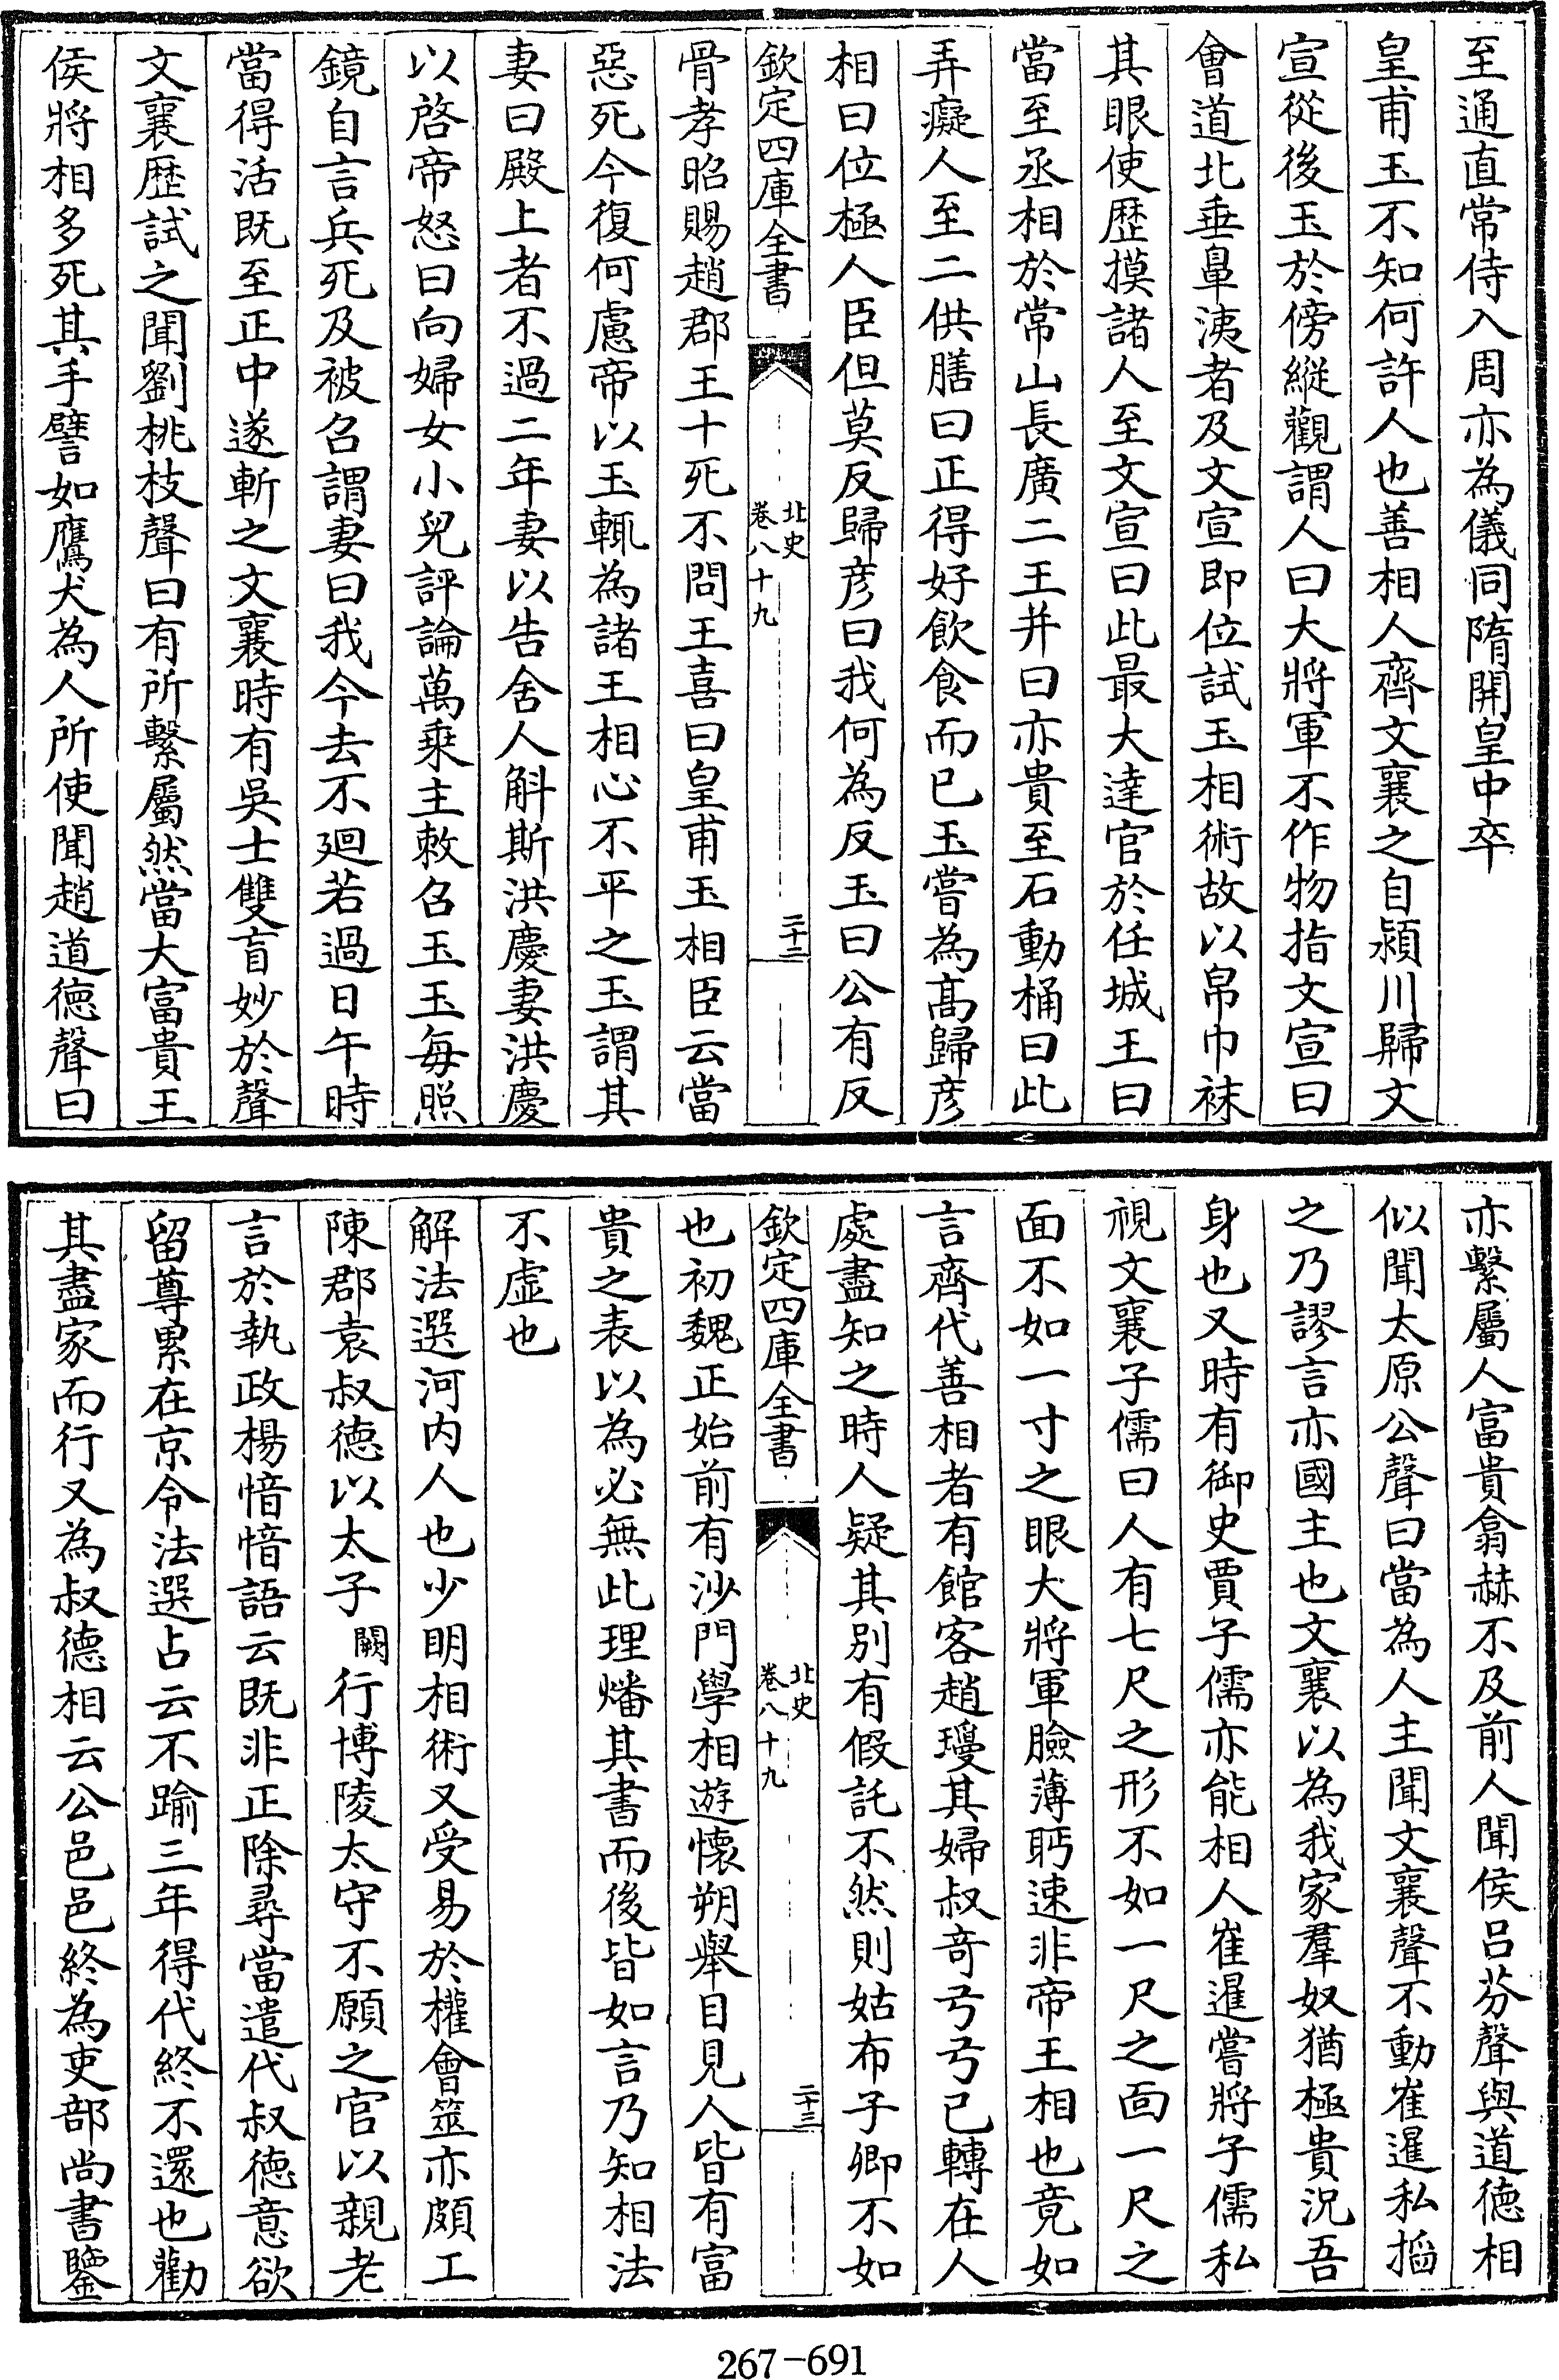 至通直常侍入周亦為儀同隋開皇中卒
皇甫玉不知何許人也善相人齊文襄之自潁川歸文
宣從後玉於傍縱觀謂人曰大將軍不作物指文宣曰
會道北垂鼻洟者及文宣即位試玉相術故以帛巾袜
其眼使歴摸諸人至文宣曰此最大達官於任城王曰
當至丞相於常山長廣二王并曰亦貴至石動桶曰此
弄癡人至二供膳曰正得好飲食而已玉嘗為髙歸彦
相曰位極人臣但莫反歸彦曰我何為反玉曰公有反
欽定四庫全書
北史
卷八十九
二十二
骨孝昭賜趙郡王十死不問王喜曰皇甫玉相臣云當
惡死今復何慮帝以玉輒為諸王相心不平之玉謂其
妻曰殿上者不過二年妻以告舍人斛斯洪慶妻洪慶
以啓帝怒曰向婦女小兒評論萬乗主敕召玉玉每照
鏡自言兵死及被召謂妻曰我今去不廻若過日午時
當得活既至正中遂斬之文襄時有吳士雙盲妙於聲
文襄歴試之聞劉桃枝聲曰有所繫屬然當大富貴王
侯將相多死其手譬如鷹犬為人所使聞趙道徳聲曰
亦繫屬人富貴翕赫不及前人聞侯呂芬聲與道徳相
似聞太原公聲曰當為人主聞文襄聲不動崔暹私搯
之乃謬言亦國主也文襄以為我家羣奴猶極貴況吾
身也又時有御史賈子儒亦能相人崔暹嘗將子儒私
視文襄子儒曰人有七尺之形不如一尺之面一尺之
面不如一寸之眼大將軍臉薄眄速非帝王相也竟如
言齊代善相者有館客趙瓊其婦叔奇弓弓已轉在人
處盡知之時人疑其別有假託不然則姑布子卿不如
欽定四庫全書
北史
卷八十九
二十三
也初魏正始前有沙門學相遊懐朔舉目見人皆有富
貴之表以為必無此理燔其書而後皆如言乃知相法
不虚也
解法選河内人也少明相術又受易於權會筮亦頗工
陳郡袁叔徳以太子闕行博陵太守不願之官以親老
言於執政楊愔愔語云既非正除尋當遣代叔徳意欲
留尊累在京令法選占云不踰三年得代終不還也勸
其盡家而行又為叔德相云公邑邑終為吏部尚書鑒
267-691